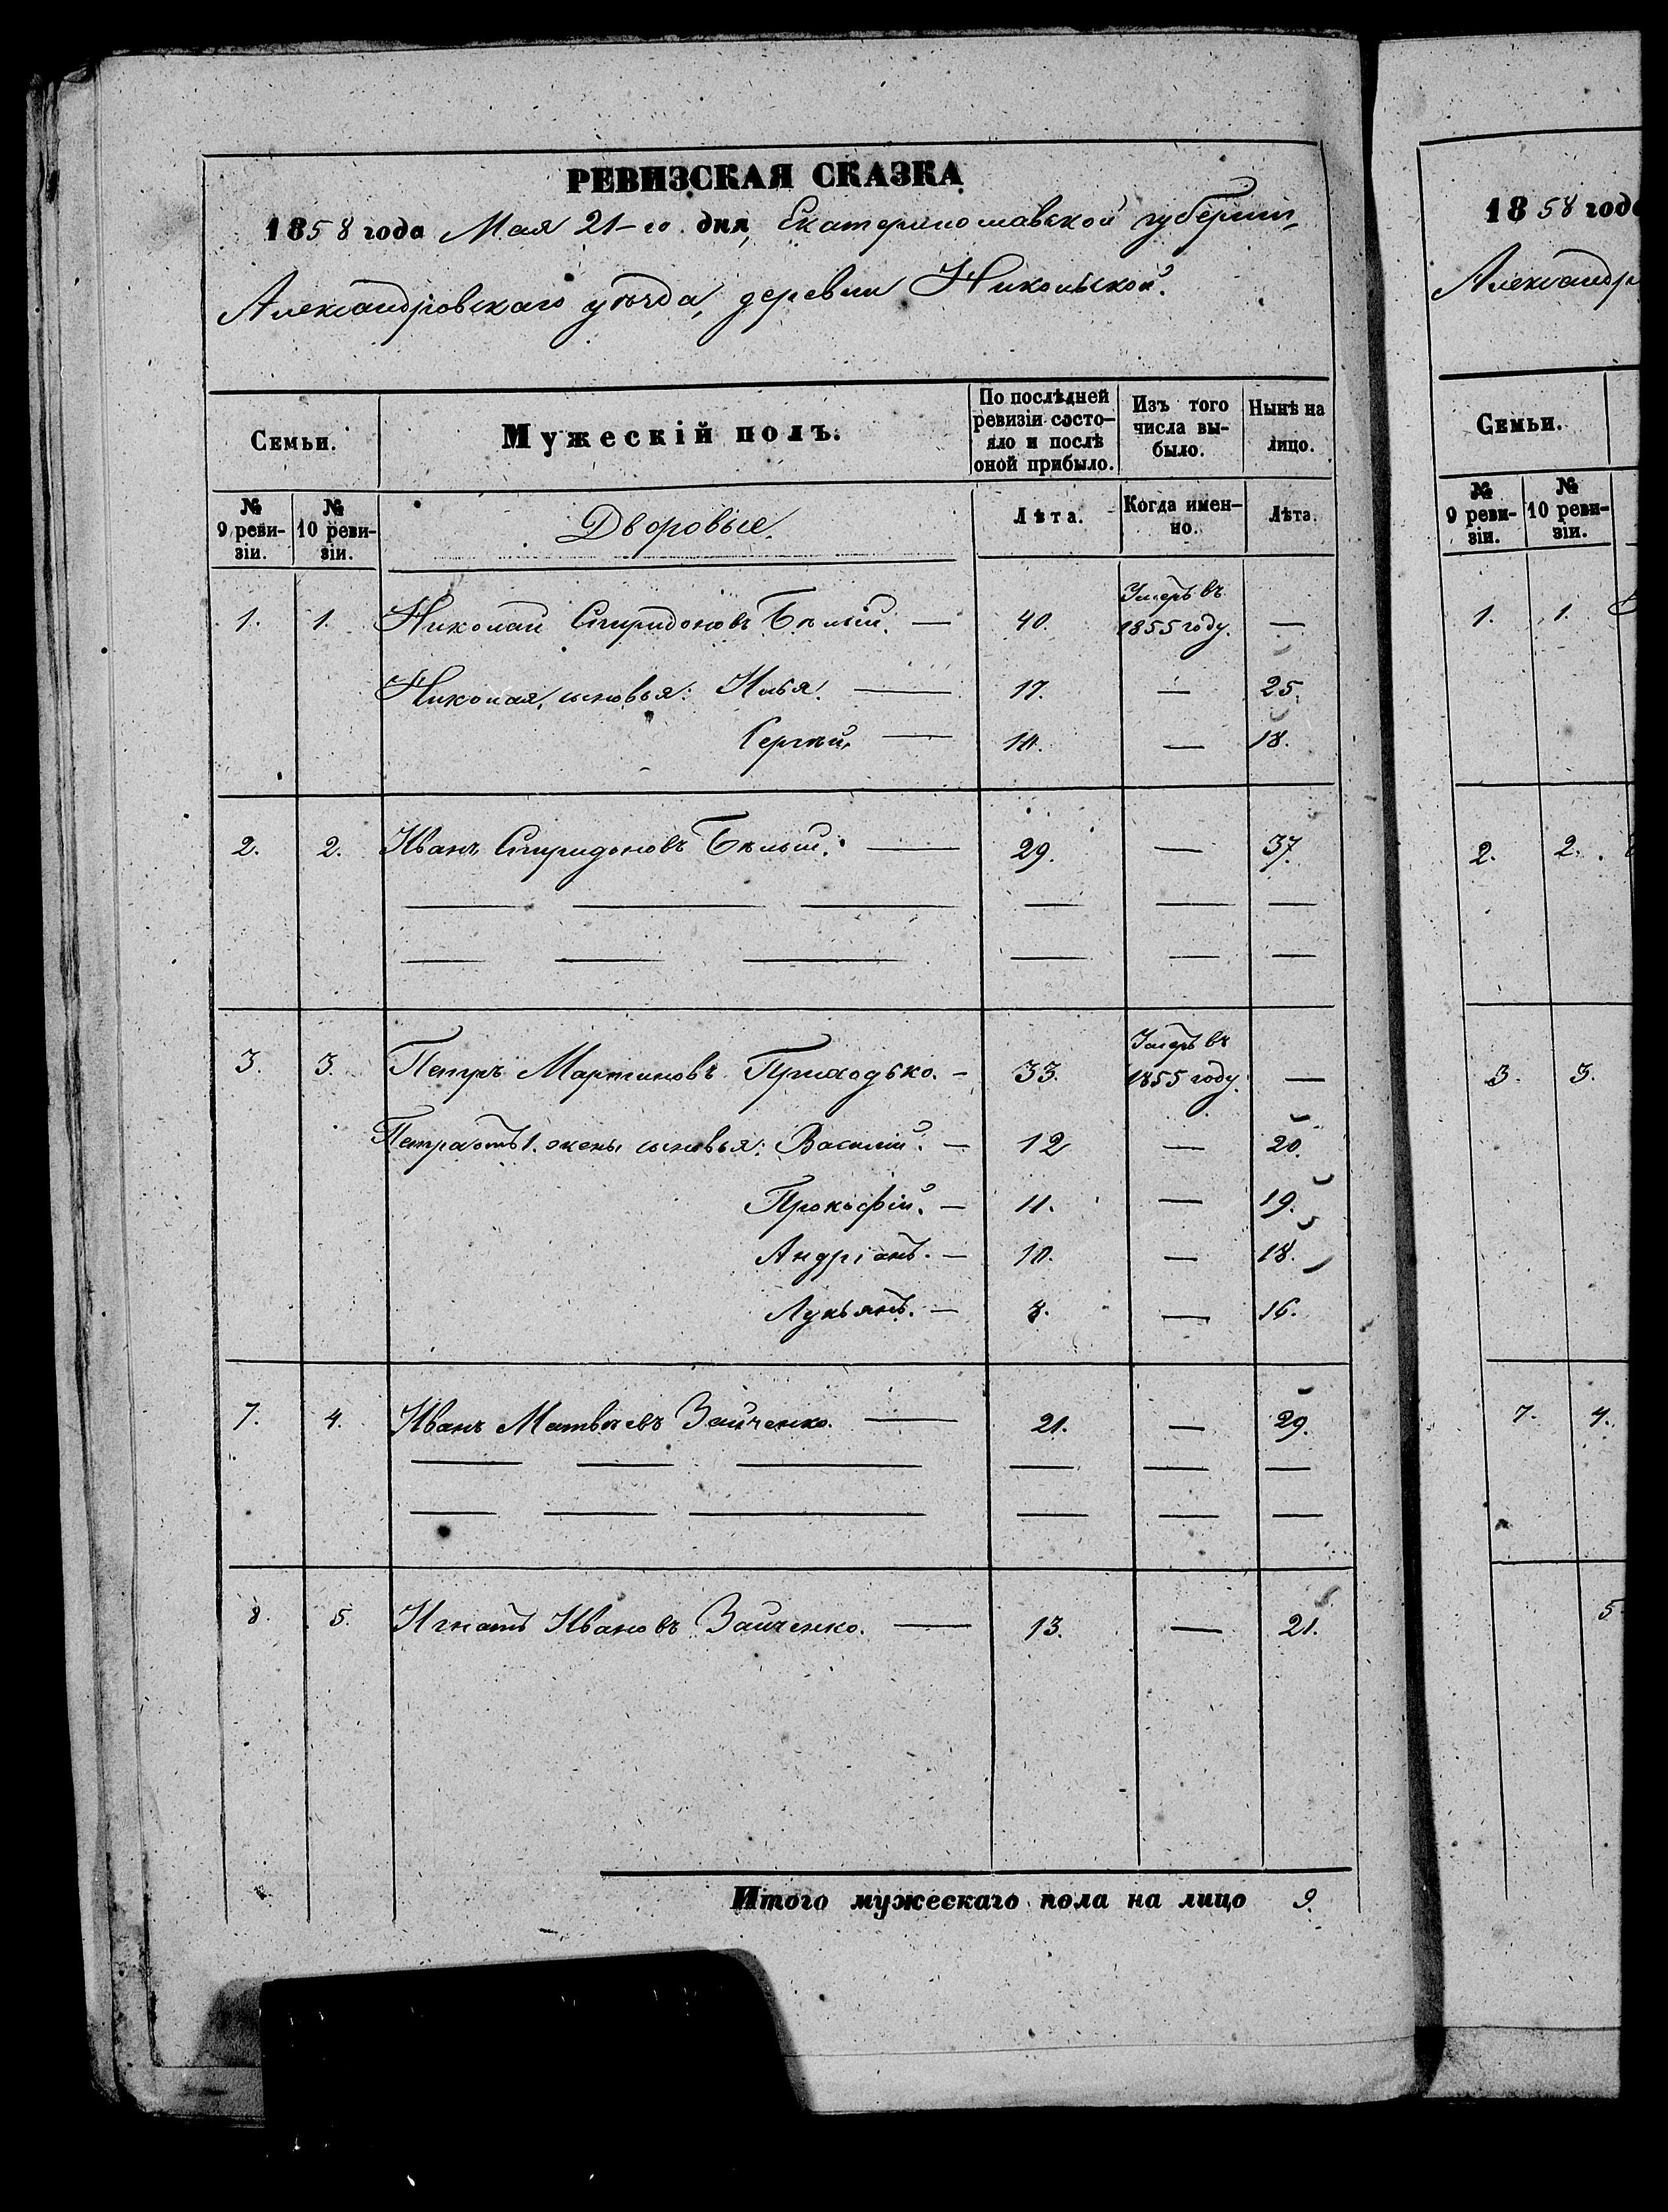 РЕВИЗСКАЯ СКАЗКА
1858 года Мая 21-го дня, Екатеринославской губерніи,
Александровскаго уѣзда, деревни Никольской.
Семьи. Мужескій полъ. По послѣдней ревизіи состо- яло и послѣ оной прибыло. Изъ того числа вы- было. Нынѣ на лицо.
№ 9 реви- зіи. № 10 реви- зіи. Дворовые. Лѣта. Когда имен- но. Лѣта.
1. 1. Николай Спиридоновъ Бѣлый. — 40. Умеръ въ 1855 году. —
Николая, сыновья: Илья. — 17. — 25.
Сергѣй. — 10. — 18.
2. 2. Иванъ Спиридоновъ Бѣлый. — 29. — 37.
3. 3. Петръ Мартиновъ Приходько. — 33. Умеръ въ 1855 году. —
Петра отъ 1. жены сыновья: Василій. — 12 — 20.
Прокофій. — 11. — 19.
Андріанъ. — 10. — 18.
Лукьянъ. — 8. — 16.
7. 4. Иванъ Матвѣевъ Зайченко. — 21. — 29.
8. 5. Игнатъ Ивановъ Зайченко. — 13. — 21.
Итого мужескаго пола на лицо 9.
1858 года
Александр
Семьи.
№ 9 реви- зіи. № 10 реви- зіи.
1. 1.
2. 2.
3. 3.
7. 4.
5